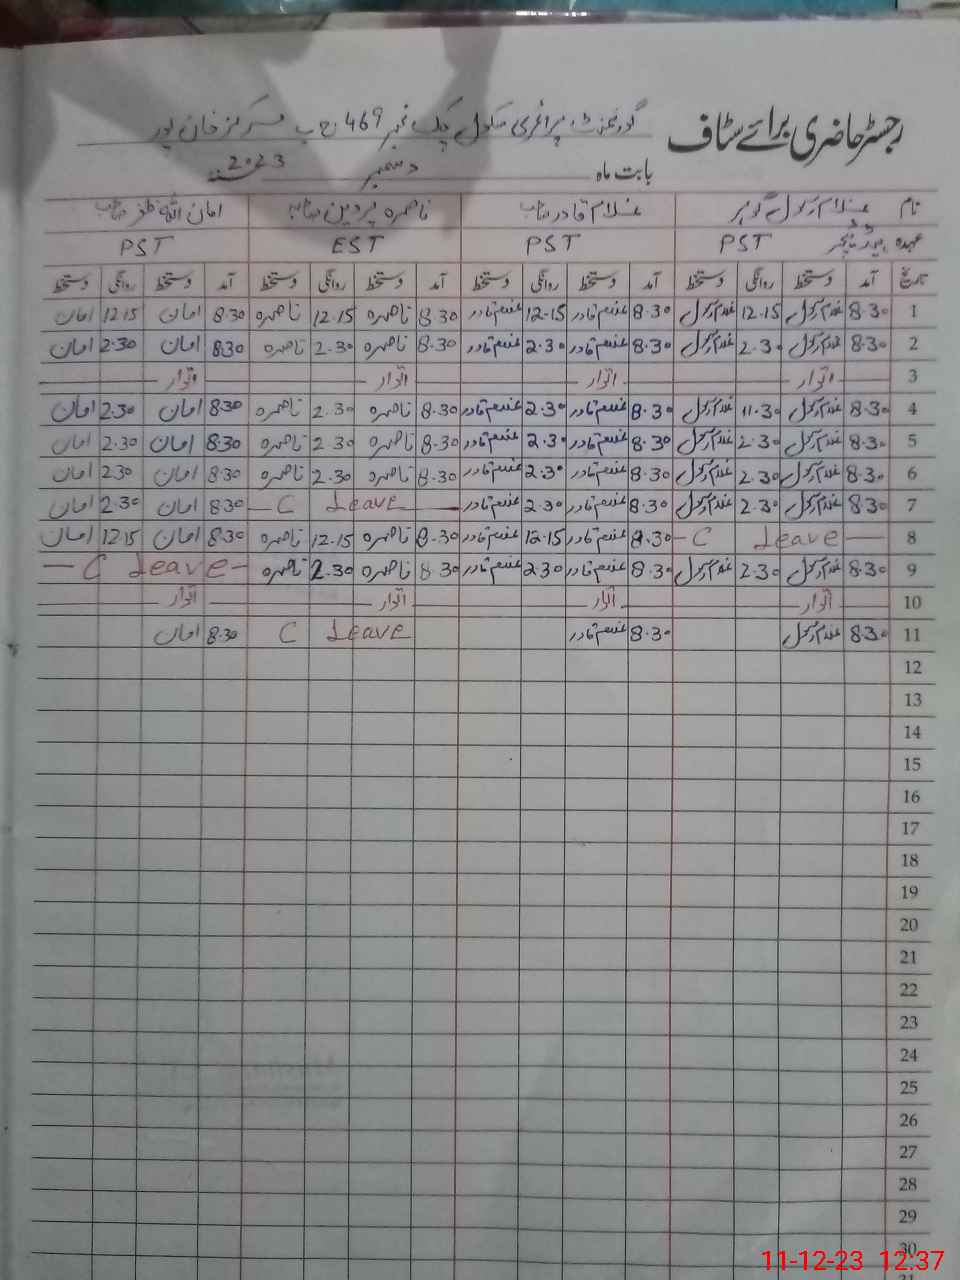 رجسٹر حاضری برائے سٹاف گورنمنٹ پرائمری سکول چک نمبر 469 ج ب مرکز خان پور
بابت ماہ دسمبر 2023
نام غلام رسول گوہر غلام قادر صاحب ناصرہ پروین صاحبہ امان اللہ ظفر صاحب
عہدہ ہیڈ ٹیچر PST PST EST PST
تاریخ آمد دستخط روانگی دستخط آمد دستخط روانگی دستخط آمد دستخط روانگی دستخط آمد دستخط روانگی دستخط
1 8.30 غلام رسول 12.15 غلام رسول 8.30 غلام قادر 12-15 غلام قادر 8.30 ناصرہ 12.15 ناصرہ 8.30 امان 12.15 امان
2 8.30 غلام رسول 2.30 غلام رسول 8.30 غلام قادر 2.30 غلام قادر 8.30 ناصرہ 2.30 ناصرہ 8.30 امان 2.30 امان
3 اتوار اتوار اتوار اتوار
4 8.30 غلام رسول 11.30 غلام رسول 8.30 غلام قادر 2.30 غلام قادر 8.30 ناصرہ 2.30 ناصرہ 8.30 امان 2.30 امان
5 8.30 غلام رسول 2.30 غلام رسول 8.30 غلام قادر 2.30 غلام قادر 8.30 ناصرہ 2.30 ناصرہ 8.30 امان 2.30 امان
6 8.30 غلام رسول 2.30 غلام رسول 8.30 غلام قادر 2.30 غلام قادر 8.30 ناصرہ 2.30 ناصرہ 8.30 امان 2.30 امان
7 8.30 غلام رسول 2.30 غلام رسول 8.30 غلام قادر 2.30 غلام قادر C Leave 8.30 امان 2.30 امان
8 C Leave 8.30 غلام قادر 12.15 غلام قادر 8.30 ناصرہ 12.15 ناصرہ 8.30 امان 12.15 امان
9 8.30 غلام رسول 2.30 غلام رسول 8.30 غلام قادر 2.30 غلام قادر 8.30 ناصرہ 2.30 ناصرہ C Leave
10 اتوار اتوار اتوار اتوار
11 8.30 غلام رسول 8.30 غلام قادر C Leave 8.30 امان
12
13
14
15
16
17
18
19
20
21
22
23
24
25
26
27
28
29
30
11-12-23 12:37